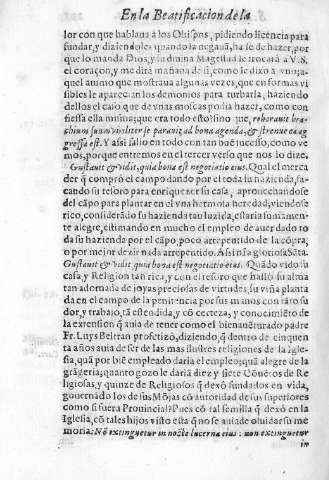 En la Beatificacion de la
lor con que hablaua a los Obispos, pidiendo licencia para
fundar, y diziendoles quando la negauã, ha se de hazer, por
que lo manda Dios, y su diuina Magestad le trocarà a V.S.
el coraçon, y me dirà mañana de si, como le dixo à vno: a-
quel animo que mostraua algunas vezes, que en formas vi-
sibles le aparecian los demonios para turbarla, haziendo
dellos el caso que de vnas moscas podia hazer, como con
fiessa ella misma: que era todo esto sino que, roborauit bra-
chium suum
viriliter se parauit ad bona agenda, & strenue ea ag
gressa est. Y assi salio en todo con tan buẽ sucesso, como ve
mos, porque entremos en el tercer verso que nos lo dize.
Gustauit & vidit, quia bona est negotiatio eius. Qual el merca
der q̃ comprò el campo dando por el toda su hazienda, sa-
cando su tesoro para enriquezer su casa, aprouechandose
del cãpo para plantar en el vna hermosa heredad, viendose
rico, considerãdo su hazienda tan luzida, estaria sumamen-
te alegre, estimando en mucho el empleo de auer dado to
da su hazienda por el cãpo, poco arrepentido de la cõpra,
o por mejor dezir nada arrepentido. Assi nr̃a gloriosa Sãta.
Gustauit & vidit quia bona est negotiatio eius. Quãdo vido su
casa y Religion tan rica, y con el tesoro que hallò su alma
tan adornada de joyas preciosas de virtudes, su viña planta
da en el campo de la penitencia por sus manos con tãto su
dor, y trabajo, tã estendida, y cõ certeza, y conocimiẽto de
la extension q̃ auia de tener como el bienauẽturado padre
Fr. Luys Beltran profetizò, diziendo, q̃ dentro de cinquen
ta años auia de ser de las mas ilustres religiones de la Igle-
sia, quã por biẽ empleado daria el empleo: quã alegre de la
grãgeria; quanto gozo le daria diez y siete Cõuẽtos de Re
ligiosas, y quinze de Religiosos q̃ dexò fundados en vida,
gouernãdo los de sus Mõjas cõ autoridad de sus superiores
como si fuera Prouincial? Pues cõ tal semilla q̃ dexò en la
Iglesia, cõ tales hijos visto està q̃ no se auia de oluidar su me
moria: Nõ extinguetur in nocte lucerna eius: non extinguetur
in